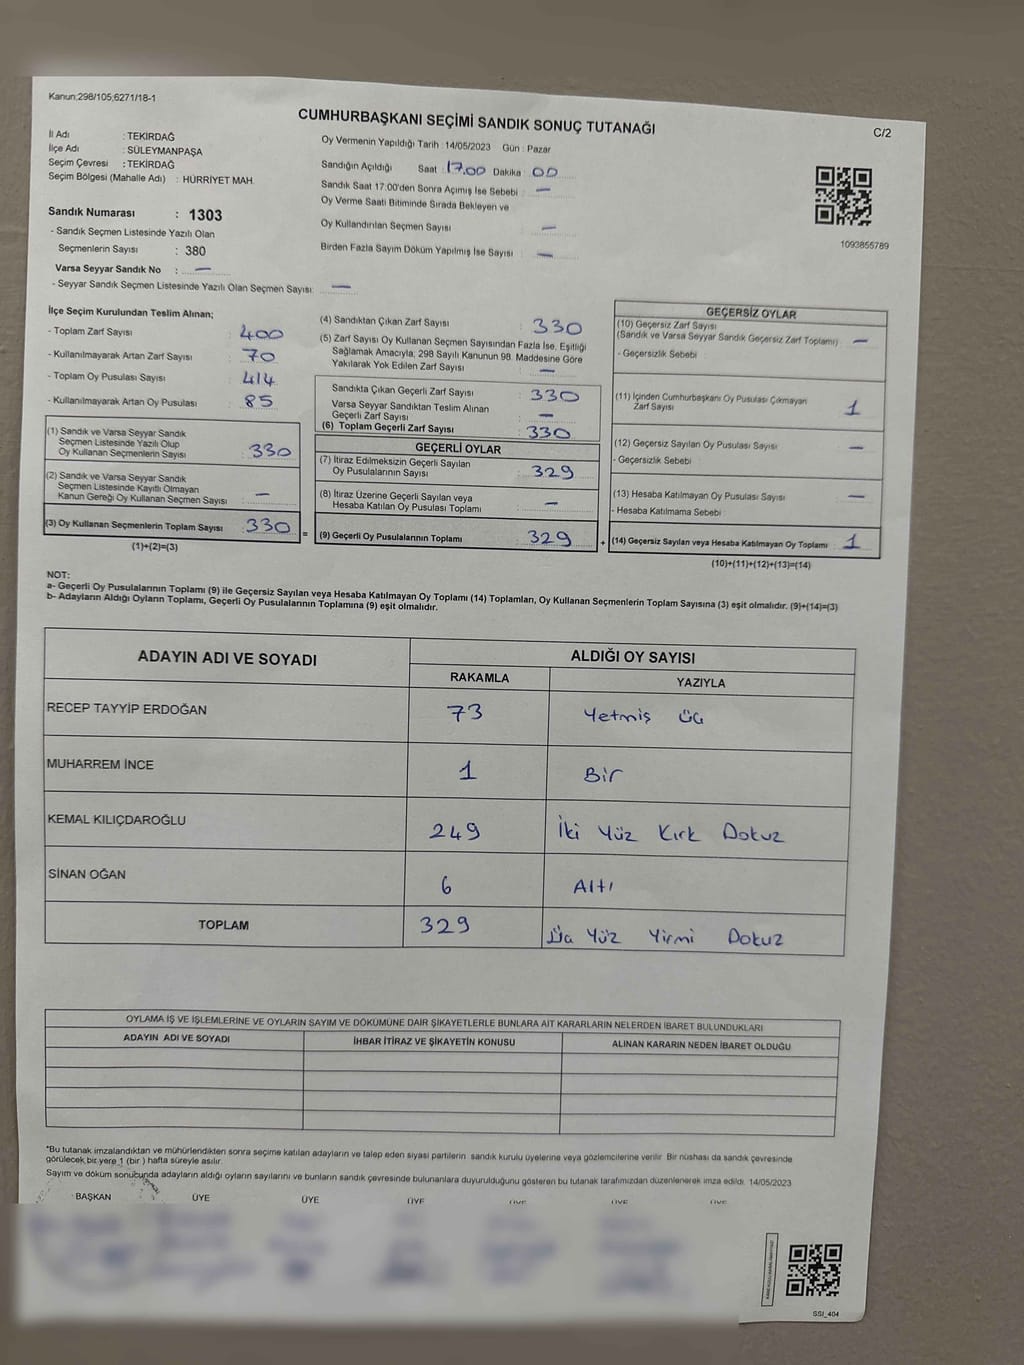 Kanun;298/105;6271/18-1
CUMHURBAŞKANI SEÇİMİ SANDIK SONUÇ TUTANAĞI
C/2
İl Adı : TEKİRDAĞ
İlçe Adı : SÜLEYMANPAŞA
Seçim Çevresi : TEKİRDAĞ
Seçim Bölgesi (Mahalle Adı) : HÜRRİYET MAH.
Sandık Numarası : 1303
- Sandık Seçmen Listesinde Yazılı Olan
Seçmenlerin Sayısı : 380
Varsa Seyyar Sandık No : —
- Seyyar Sandık Seçmen Listesinde Yazılı Olan Seçmen Sayısı: —
Oy Vermenin Yapıldığı Tarih : 14/05/2023 Gün : Pazar
Sandığın Açıldığı Saat : 17.00 Dakika : 00
Sandık Saat 17:00'den Sonra Açımış İse Sebebi : —
Oy Verme Saati Bitiminde Sırada Bekleyen ve
Oy Kullandırılan Seçmen Sayısı : —
Birden Fazla Sayım Döküm Yapılmış İse Sayısı : —
1093855789
İlçe Seçim Kurulundan Teslim Alınan;
- Toplam Zarf Sayısı : 400
- Kullanılmayarak Artan Zarf Sayısı : 70
- Toplam Oy Pusulası Sayısı : 414
- Kullanılmayarak Artan Oy Pusulası : 85
(1) Sandık ve Varsa Seyyar Sandık
Seçmen Listesinde Yazılı Olup
Oy Kullanan Seçmenlerin Sayısı : 330
(2) Sandık ve Varsa Seyyar Sandık
Seçmen Listesinde Kayıtlı Olmayan
Kanun Gereği Oy Kullanan Seçmen Sayısı : —
(3) Oy Kullanan Seçmenlerin Toplam Sayısı : 330 =
(1)+(2)=(3)
(4) Sandıktan Çıkan Zarf Sayısı : 330
(5) Zarf Sayısı Oy Kullanan Seçmen Sayısından Fazla İse, Eşitliği
Sağlamak Amacıyla; 298 Sayılı Kanunun 98. Maddesine Göre
Yakılarak Yok Edilen Zarf Sayısı : —
Sandıkta Çıkan Geçerli Zarf Sayısı : 330
Varsa Seyyar Sandıktan Teslim Alınan
Geçerli Zarf Sayısı : —
(6) Toplam Geçerli Zarf Sayısı : 330
GEÇERLİ OYLAR
(7) İtiraz Edilmeksizin Geçerli Sayılan
Oy Pusulalarının Sayısı : 329
(8) İtiraz Üzerine Geçerli Sayılan veya
Hesaba Katılan Oy Pusulası Toplamı : —
(9) Geçerli Oy Pusulalarının Toplamı : 329 +
GEÇERSİZ OYLAR
(10) Geçersiz Zarf Sayısı
(Sandık ve Varsa Seyyar Sandık Geçersiz Zarf Toplamı) : —
- Geçersizlik Sebebi :
(11) İçinden Cumhurbaşkanı Oy Pusulası Çıkmayan
Zarf Sayısı : 1
(12) Geçersiz Sayılan Oy Pusulası Sayısı : —
- Geçersizlik Sebebi :
(13) Hesaba Katılmayan Oy Pusulası Sayısı : —
- Hesaba Katılmama Sebebi :
(14) Geçersiz Sayılan veya Hesaba Katılmayan Oy Toplamı : 1
(10)+(11)+(12)+(13)=(14)
NOT:
a- Geçerli Oy Pusulalarının Toplamı (9) ile Geçersiz Sayılan veya Hesaba Katılmayan Oy Toplamı (14) Toplamları, Oy Kullanan Seçmenlerin Toplam Sayısına (3) eşit olmalıdır. (9)+(14)=(3)
b- Adayların Aldığı Oyların Toplamı, Geçerli Oy Pusulalarının Toplamına (9) eşit olmalıdır.
ADAYIN ADI VE SOYADI
ALDIĞI OY SAYISI
RAKAMLA YAZIYLA
RECEP TAYYİP ERDOĞAN 73 Yetmiş üç
MUHARREM İNCE 1 Bir
KEMAL KILIÇDAROĞLU 249 İki Yüz Kırk Dokuz
SİNAN OĞAN 6 Altı
TOPLAM 329 Üç Yüz Yirmi Dokuz
OYLAMA İŞ VE İŞLEMLERİNE VE OYLARIN SAYIM VE DÖKÜMÜNE DAİR ŞİKAYETLERLE BUNLARA AİT KARARLARIN NELERDEN İBARET BULUNDUKLARI
ADAYIN ADI VE SOYADI İHBAR İTİRAZ VE ŞİKAYETİN KONUSU ALINAN KARARIN NEDEN İBARET OLDUĞU
*Bu tutanak imzalandıktan ve mühürlendikten sonra seçime katılan adayların ve talep eden siyasi partilerin sandık kurulu üyelerine veya gözlemcilerine verilir. Bir nüshası da sandık çevresinde
görülecek bir yere 1 (bir ) hafta süreyle asılır.
Sayım ve döküm sonucunda adayların aldığı oyların sayılarını ve bunların sandık çevresinde bulunanlara duyurulduğunu gösteren bu tutanak tarafımızdan düzenlenerek imza edildi. 14/05/2023
BAŞKAN ÜYE ÜYE ÜYE ÜYE ÜYE ÜYE
SSI_404